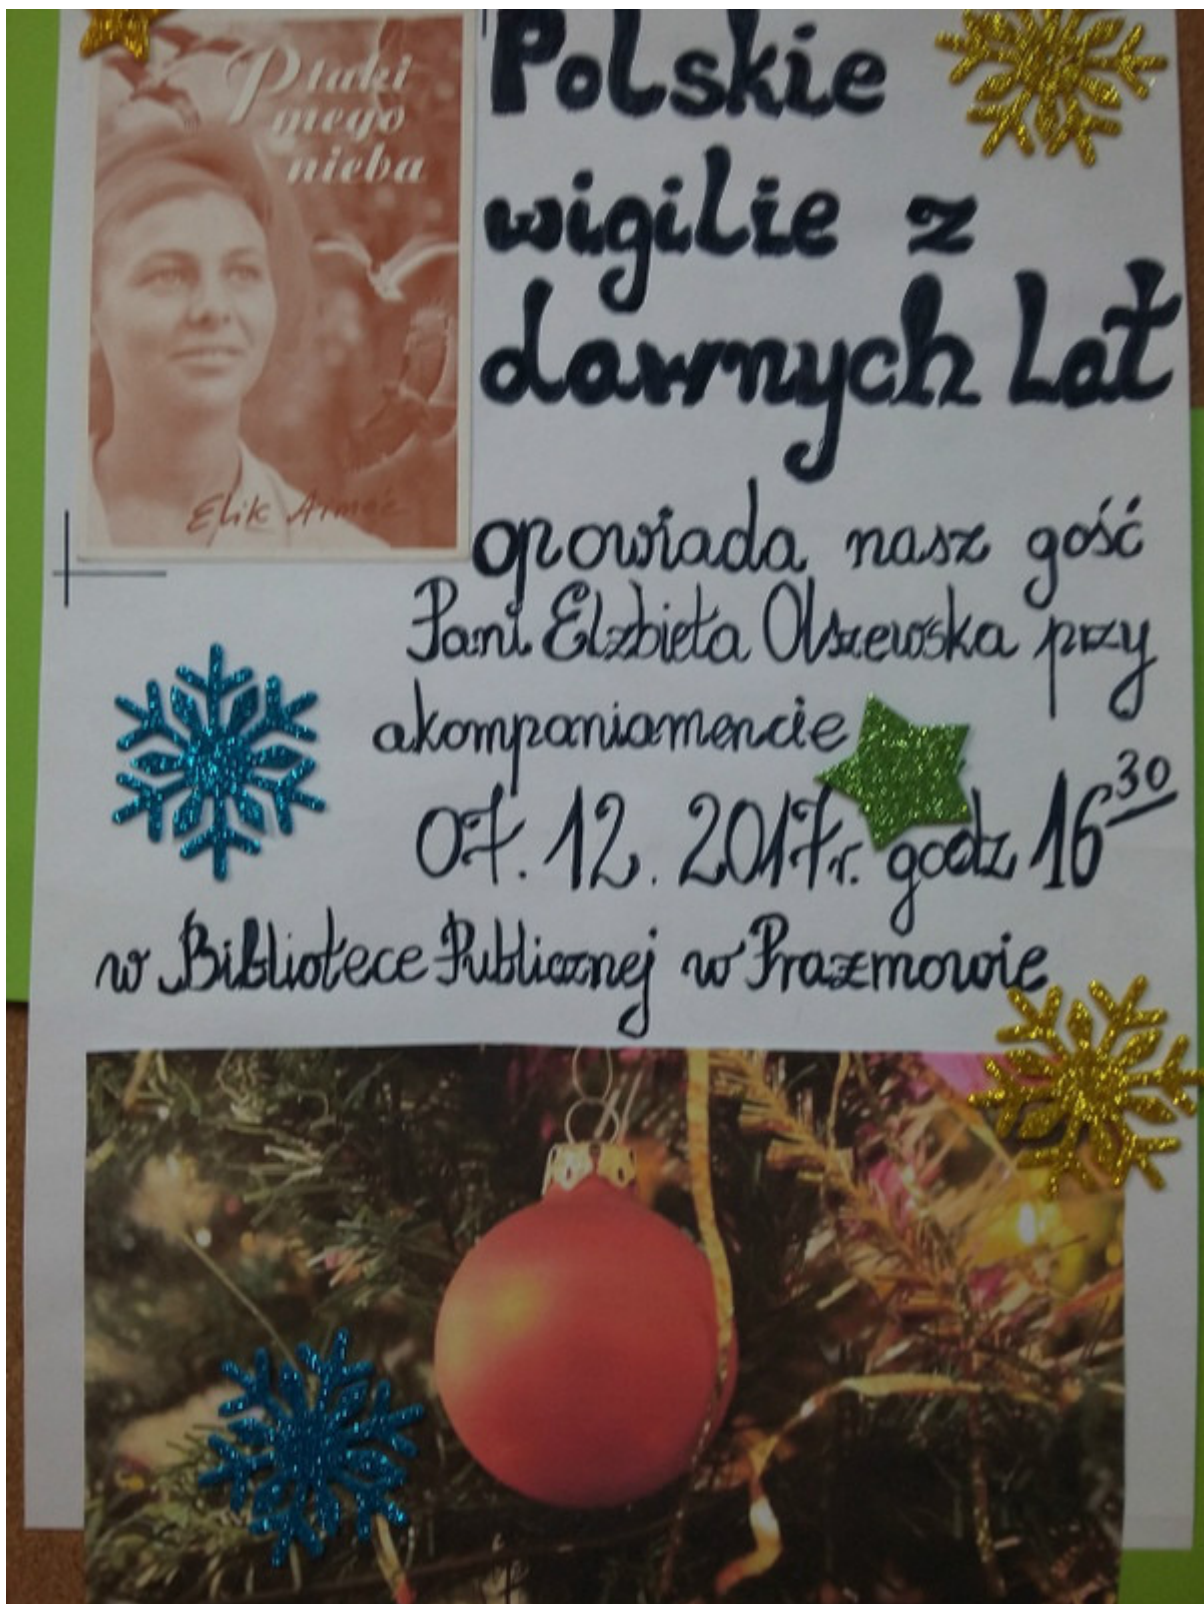 Ptaki
mego
nieba
Elik Aimée
Polskie
wigilie z
dawnych Lat
opowiada nasz gość
Pani Elzbieta Olszewska przy
akompaniamencie
07. 12. 2017r. godz 16³⁰
w Bibliotece Publicznej w Prazmowie